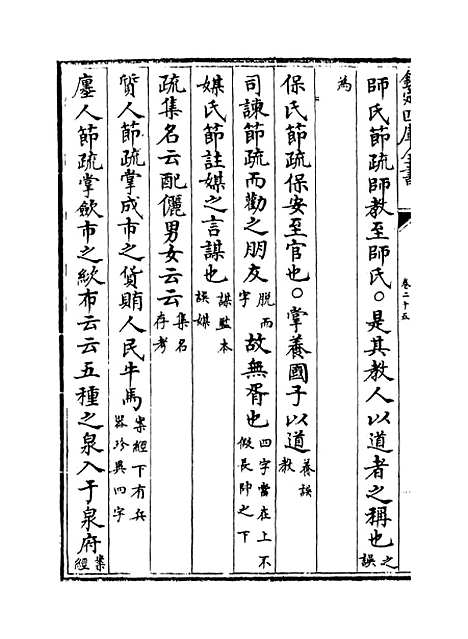 欽定四庫全書
卷二十五
師氏節疏師教至師氏○是其教人以道者之稱也之誤
為
保氏節疏保安至官也○掌養國子以道養誤教
司諫節疏而勸之朋友脫而字故無胥也四字當在上不假長帥之下
媒氏節註媒之言謀也謀監本誤媒
疏集名云配儷男女云云集名存考
質人節疏掌成市之貨賄人民牛馬案經下有兵器珍異四字
廛人節疏掌斂市之絘布云云五種之泉入于泉府案經